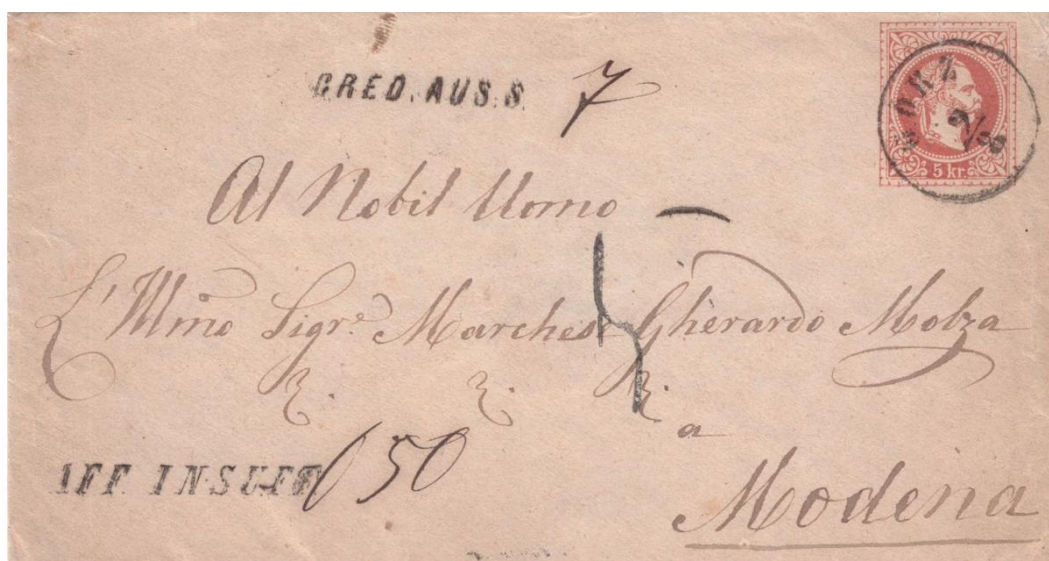 CRED. AUS. S. 7
GÖRZ
2/8
5 kr.
Al Nobil Uomo
L'Illmo Sigre Marchese Gherardo Molza
a
Modena
AFF INSUFF 50